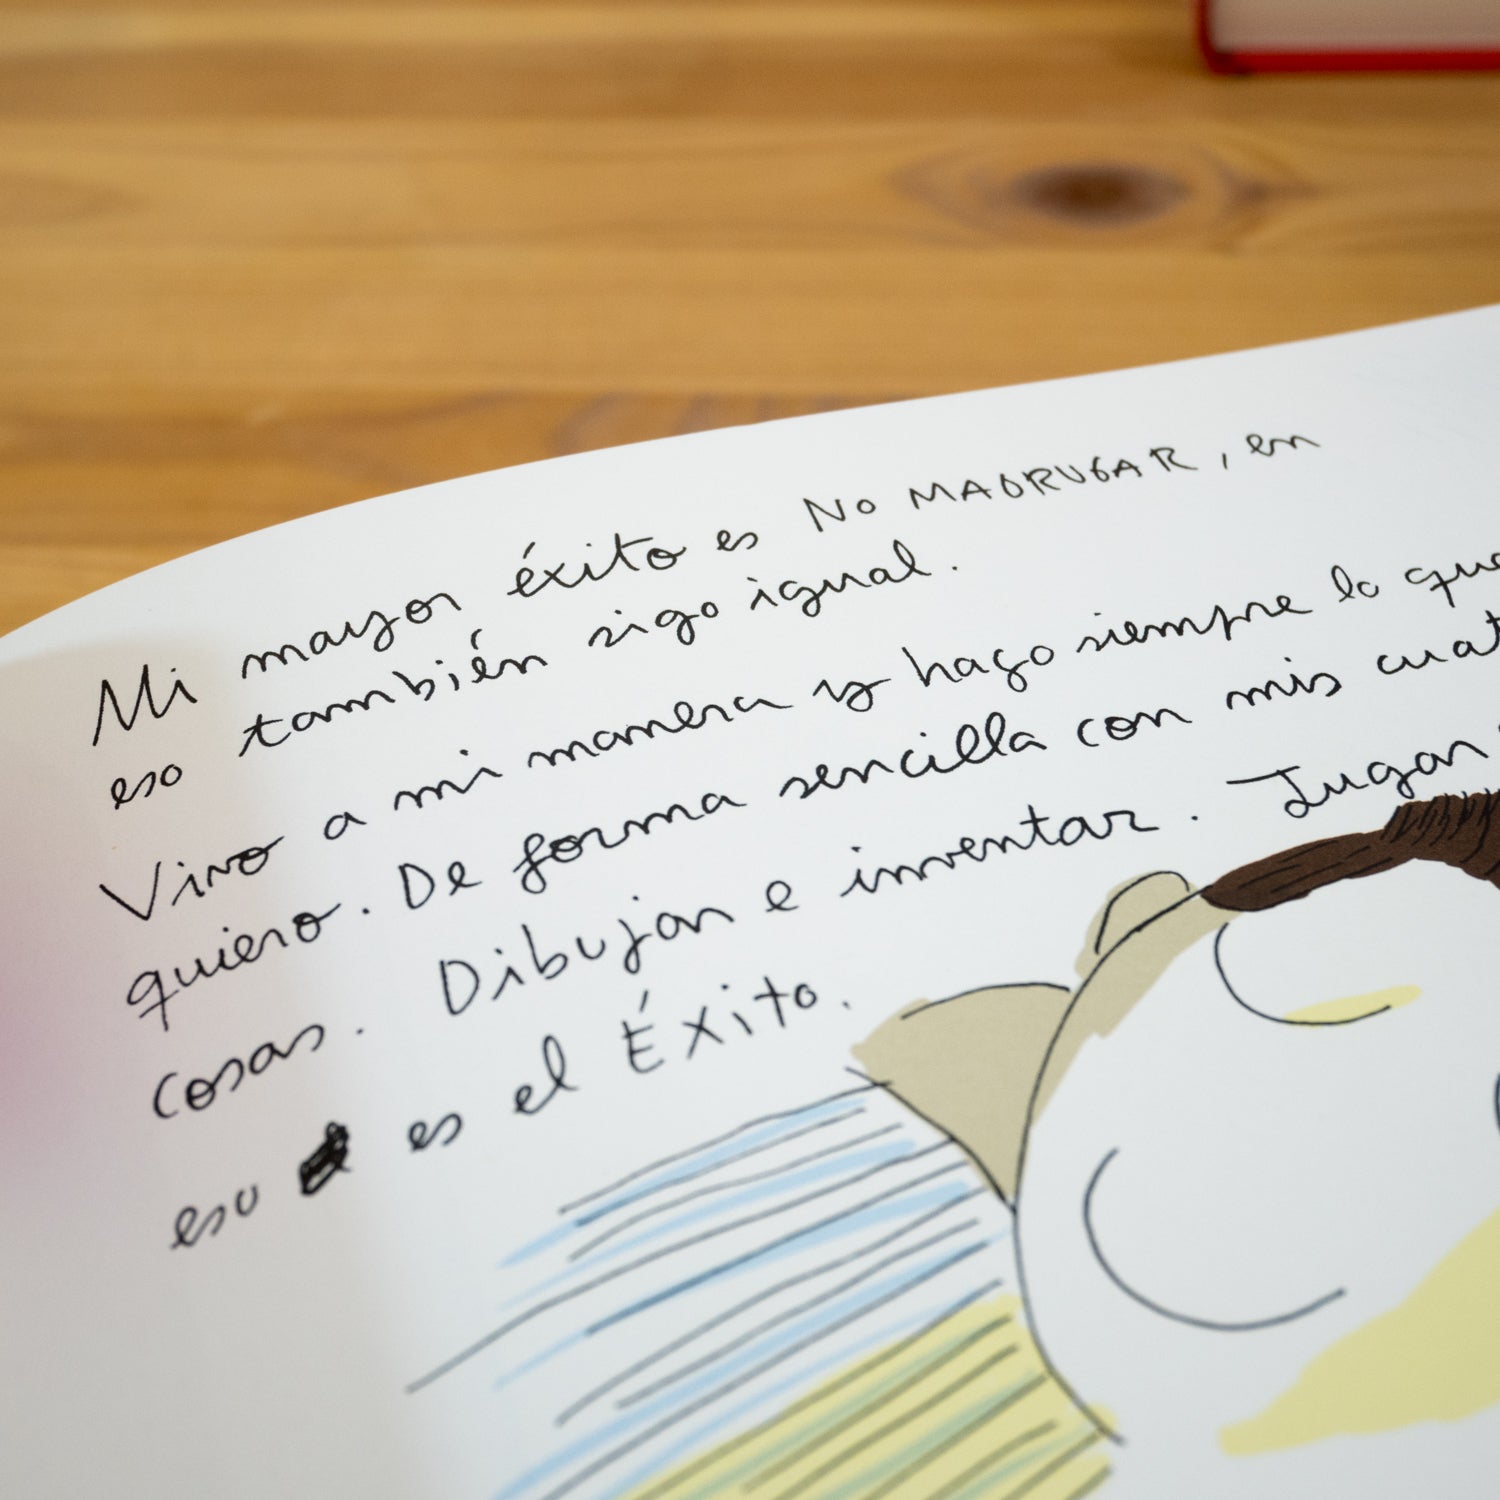 Mi mayor éxito es NO MADRUGAR, en
eso también sigo igual.
Vivo a mi manera y hago siempre lo que
quiero. De forma sencilla con mis
cosas. Dibujar e inventar. Jugar
eso es el Éxito.